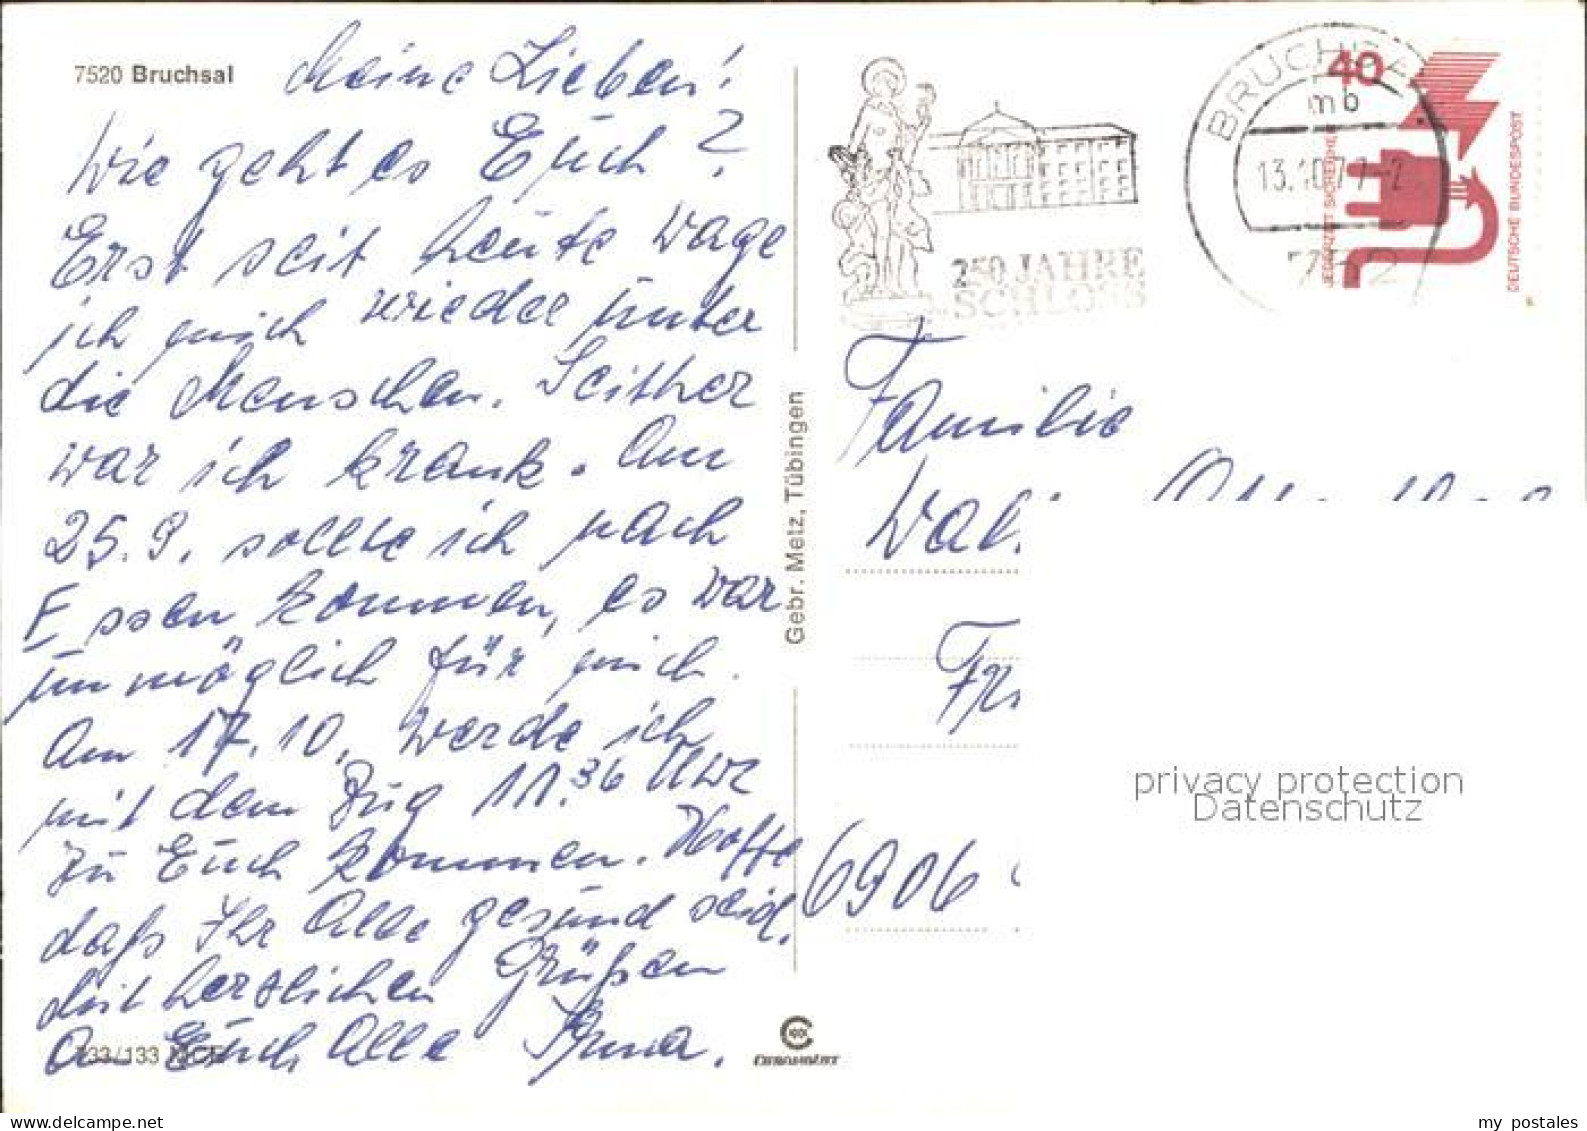 7520 Bruchsal
Meine Lieben!
Wie geht es Euch?
Erst seit heute wage
ich mich wieder unter
die Menschen. Seither
war ich krank. Am
25.9. sollte ich nach
Essen kommen, es war
unmöglich für mich.
Am 17.10. werde ich
mit dem Zug 11.36 Uhr
zu Euch kommen. Hoffe
daß Ihr Alle gesund seid.
Mit herzlichen Grüßen
an Euch Alle
233/133 MCE
Gebr. Metz, Tübingen
250 JAHRE
SCHLOSS
BRUCHSAL
mb
13.10.77-2
752
40
JEDERZEIT SICHERHEIT
DEUTSCHE BUNDESPOST
Familie
6906
privacy protection
Datenschutz
my postales